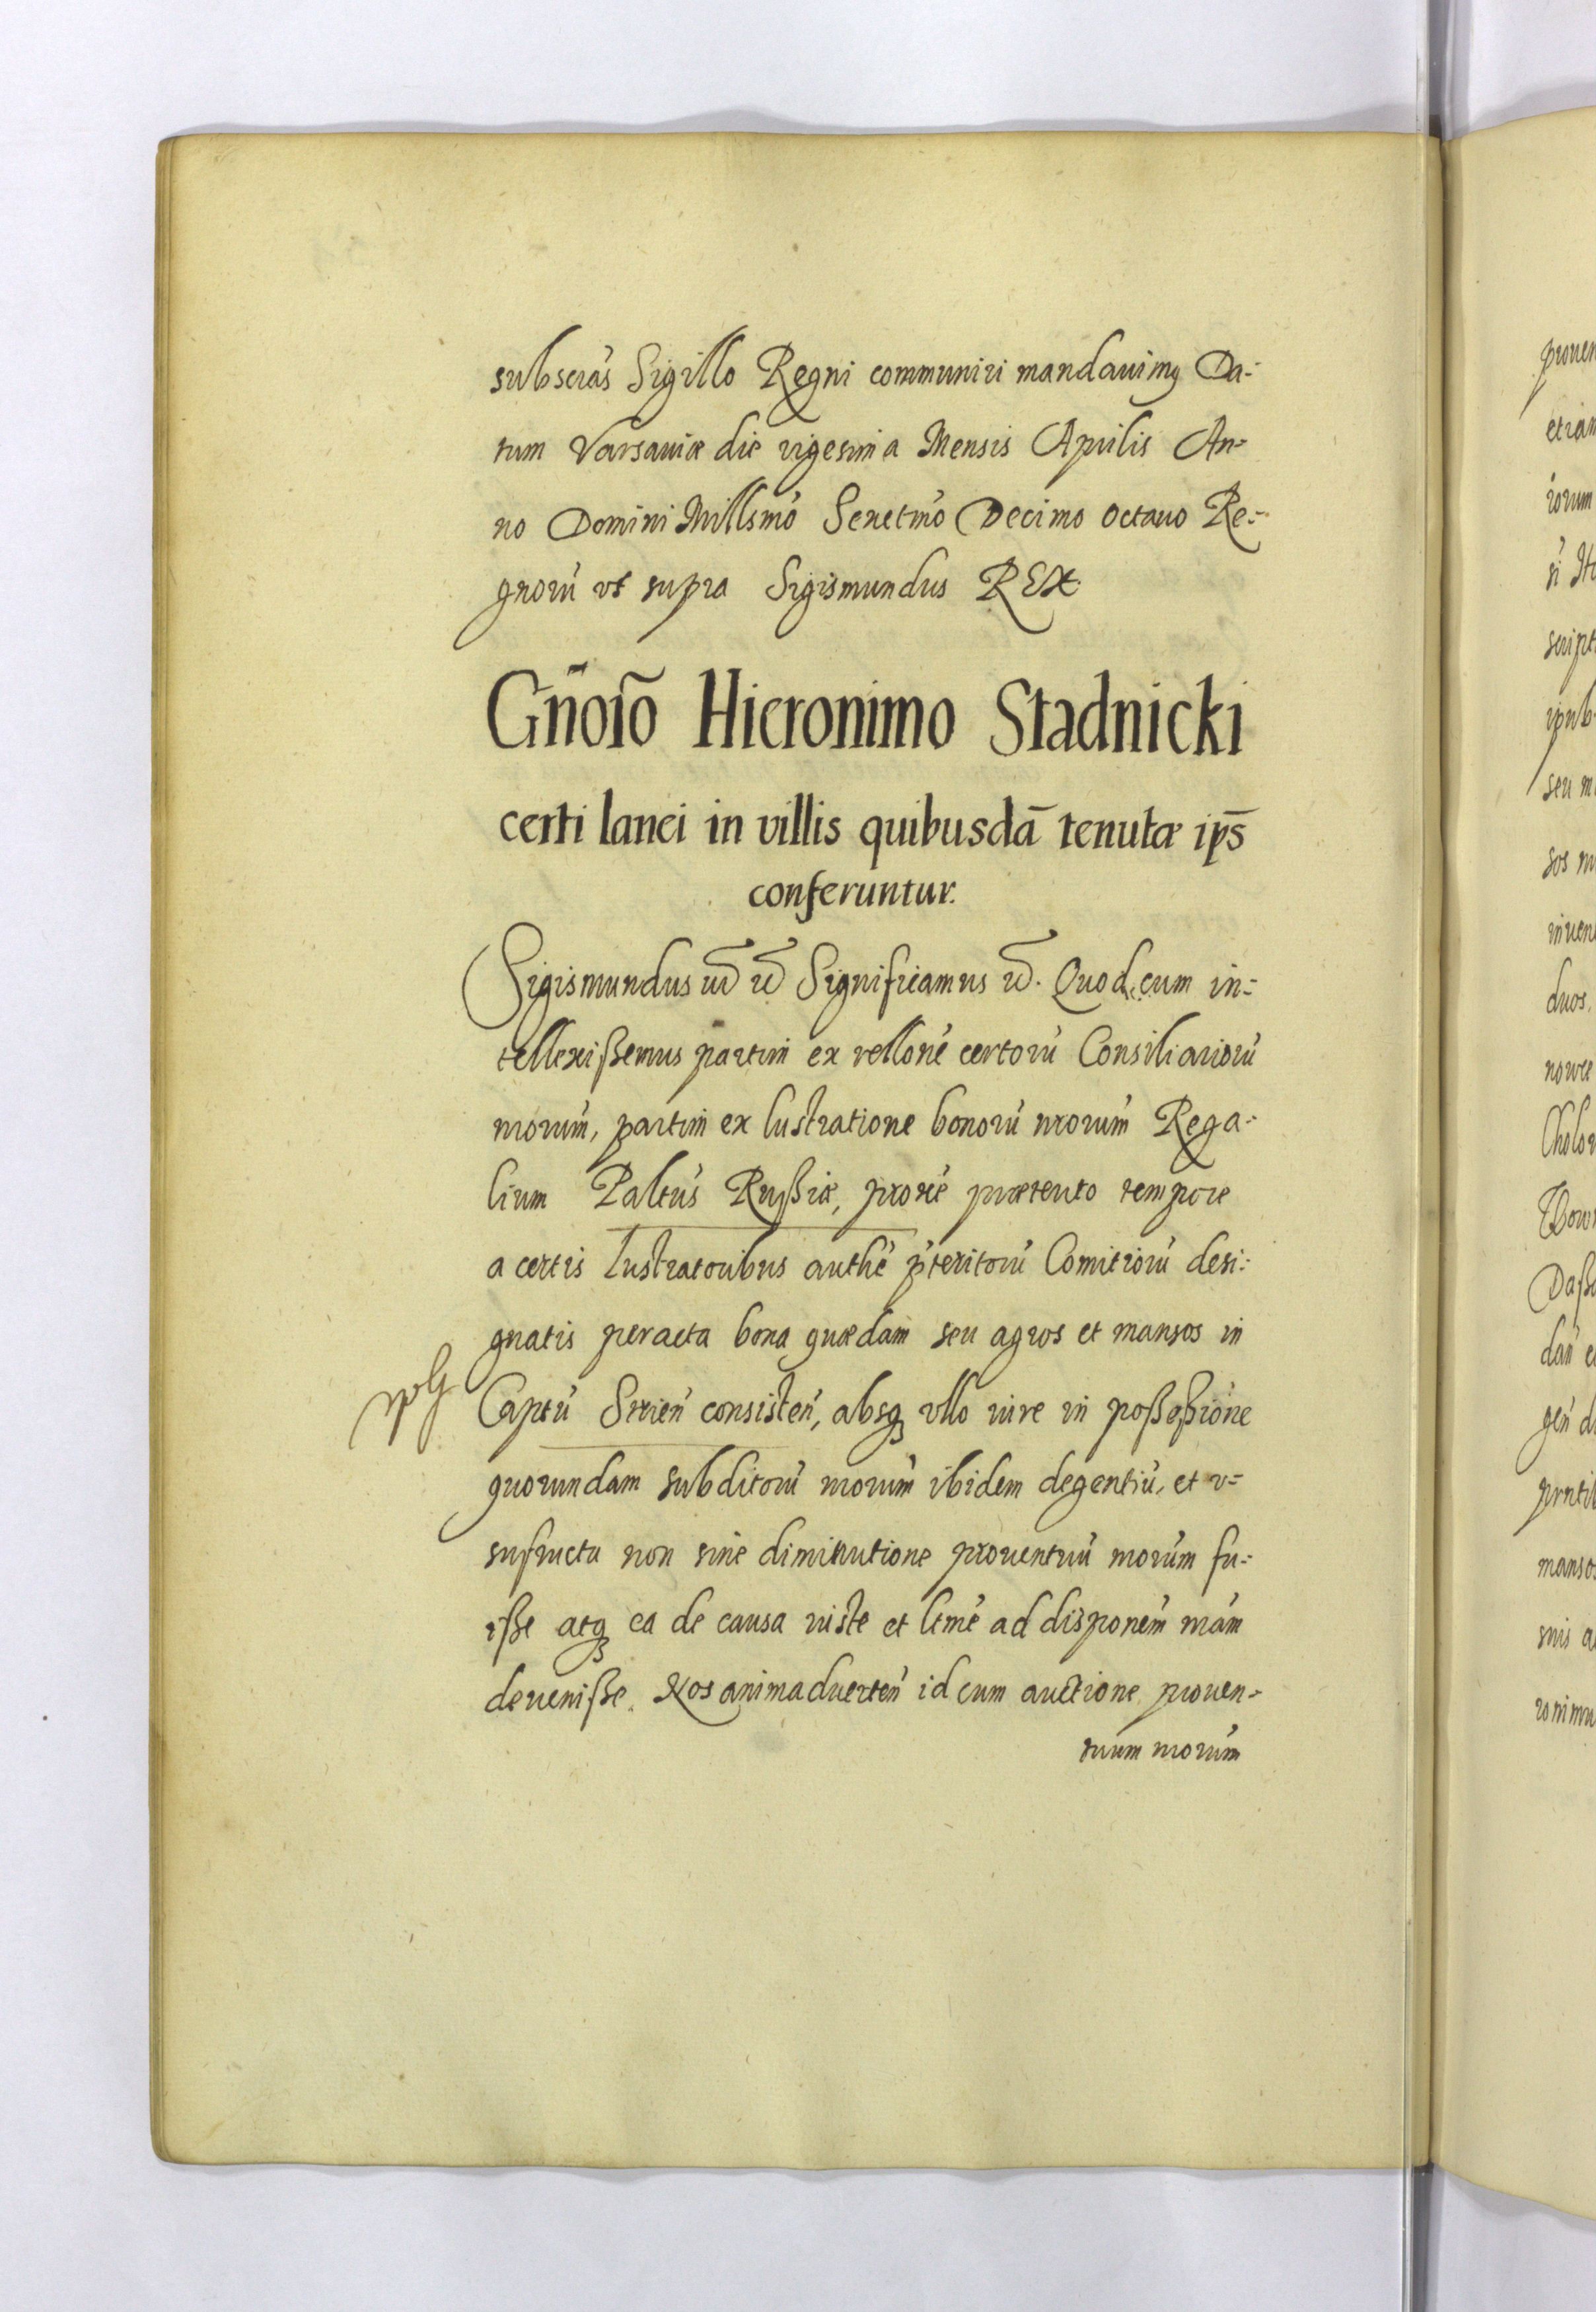 subscras Sigillo Regni communiri mandauimus Da=
tum Varsauiæ die vigesima Mensis Aprilis An=
no Domini Millsmo Sexctmo Decimo Octauo Re=
gnorū vt supra Sigismundus REX.
Gnoso Hieronimo Stadnicki
certi lanei in villis quibusdā tenutæ ips̄
conferuntur.
Sigismundus Significamus Quod cum in=
tellexißemus partim ex rellone certorū Consiliariorū
nrorum, partim ex lustratione bonorū nrorum Rega=
lium Paltus Rußiæ, proxe prætento tempore
a certis lustratoribus authe pteritorū Comitiorū desi=
gnatis peracta bona quædam seu agros et mansos in
Captu Strien consisten, absq ullo iure in poßeßione
quorundam subditorū nrorum ibidem degentiū, et v=
sufructu non sine diminutione prouentuū nrorum fu=
ißе atq ea de causa iuste et ltme ad disponem nram
deueniße. Nos animaduerten id cum auctione prouen=
tuum nrorum
prouen
etiam
iorum
script
seu m
sos m
inuen
duos.
Cholo
dan e
gen d
mansos
suis a
ronimu